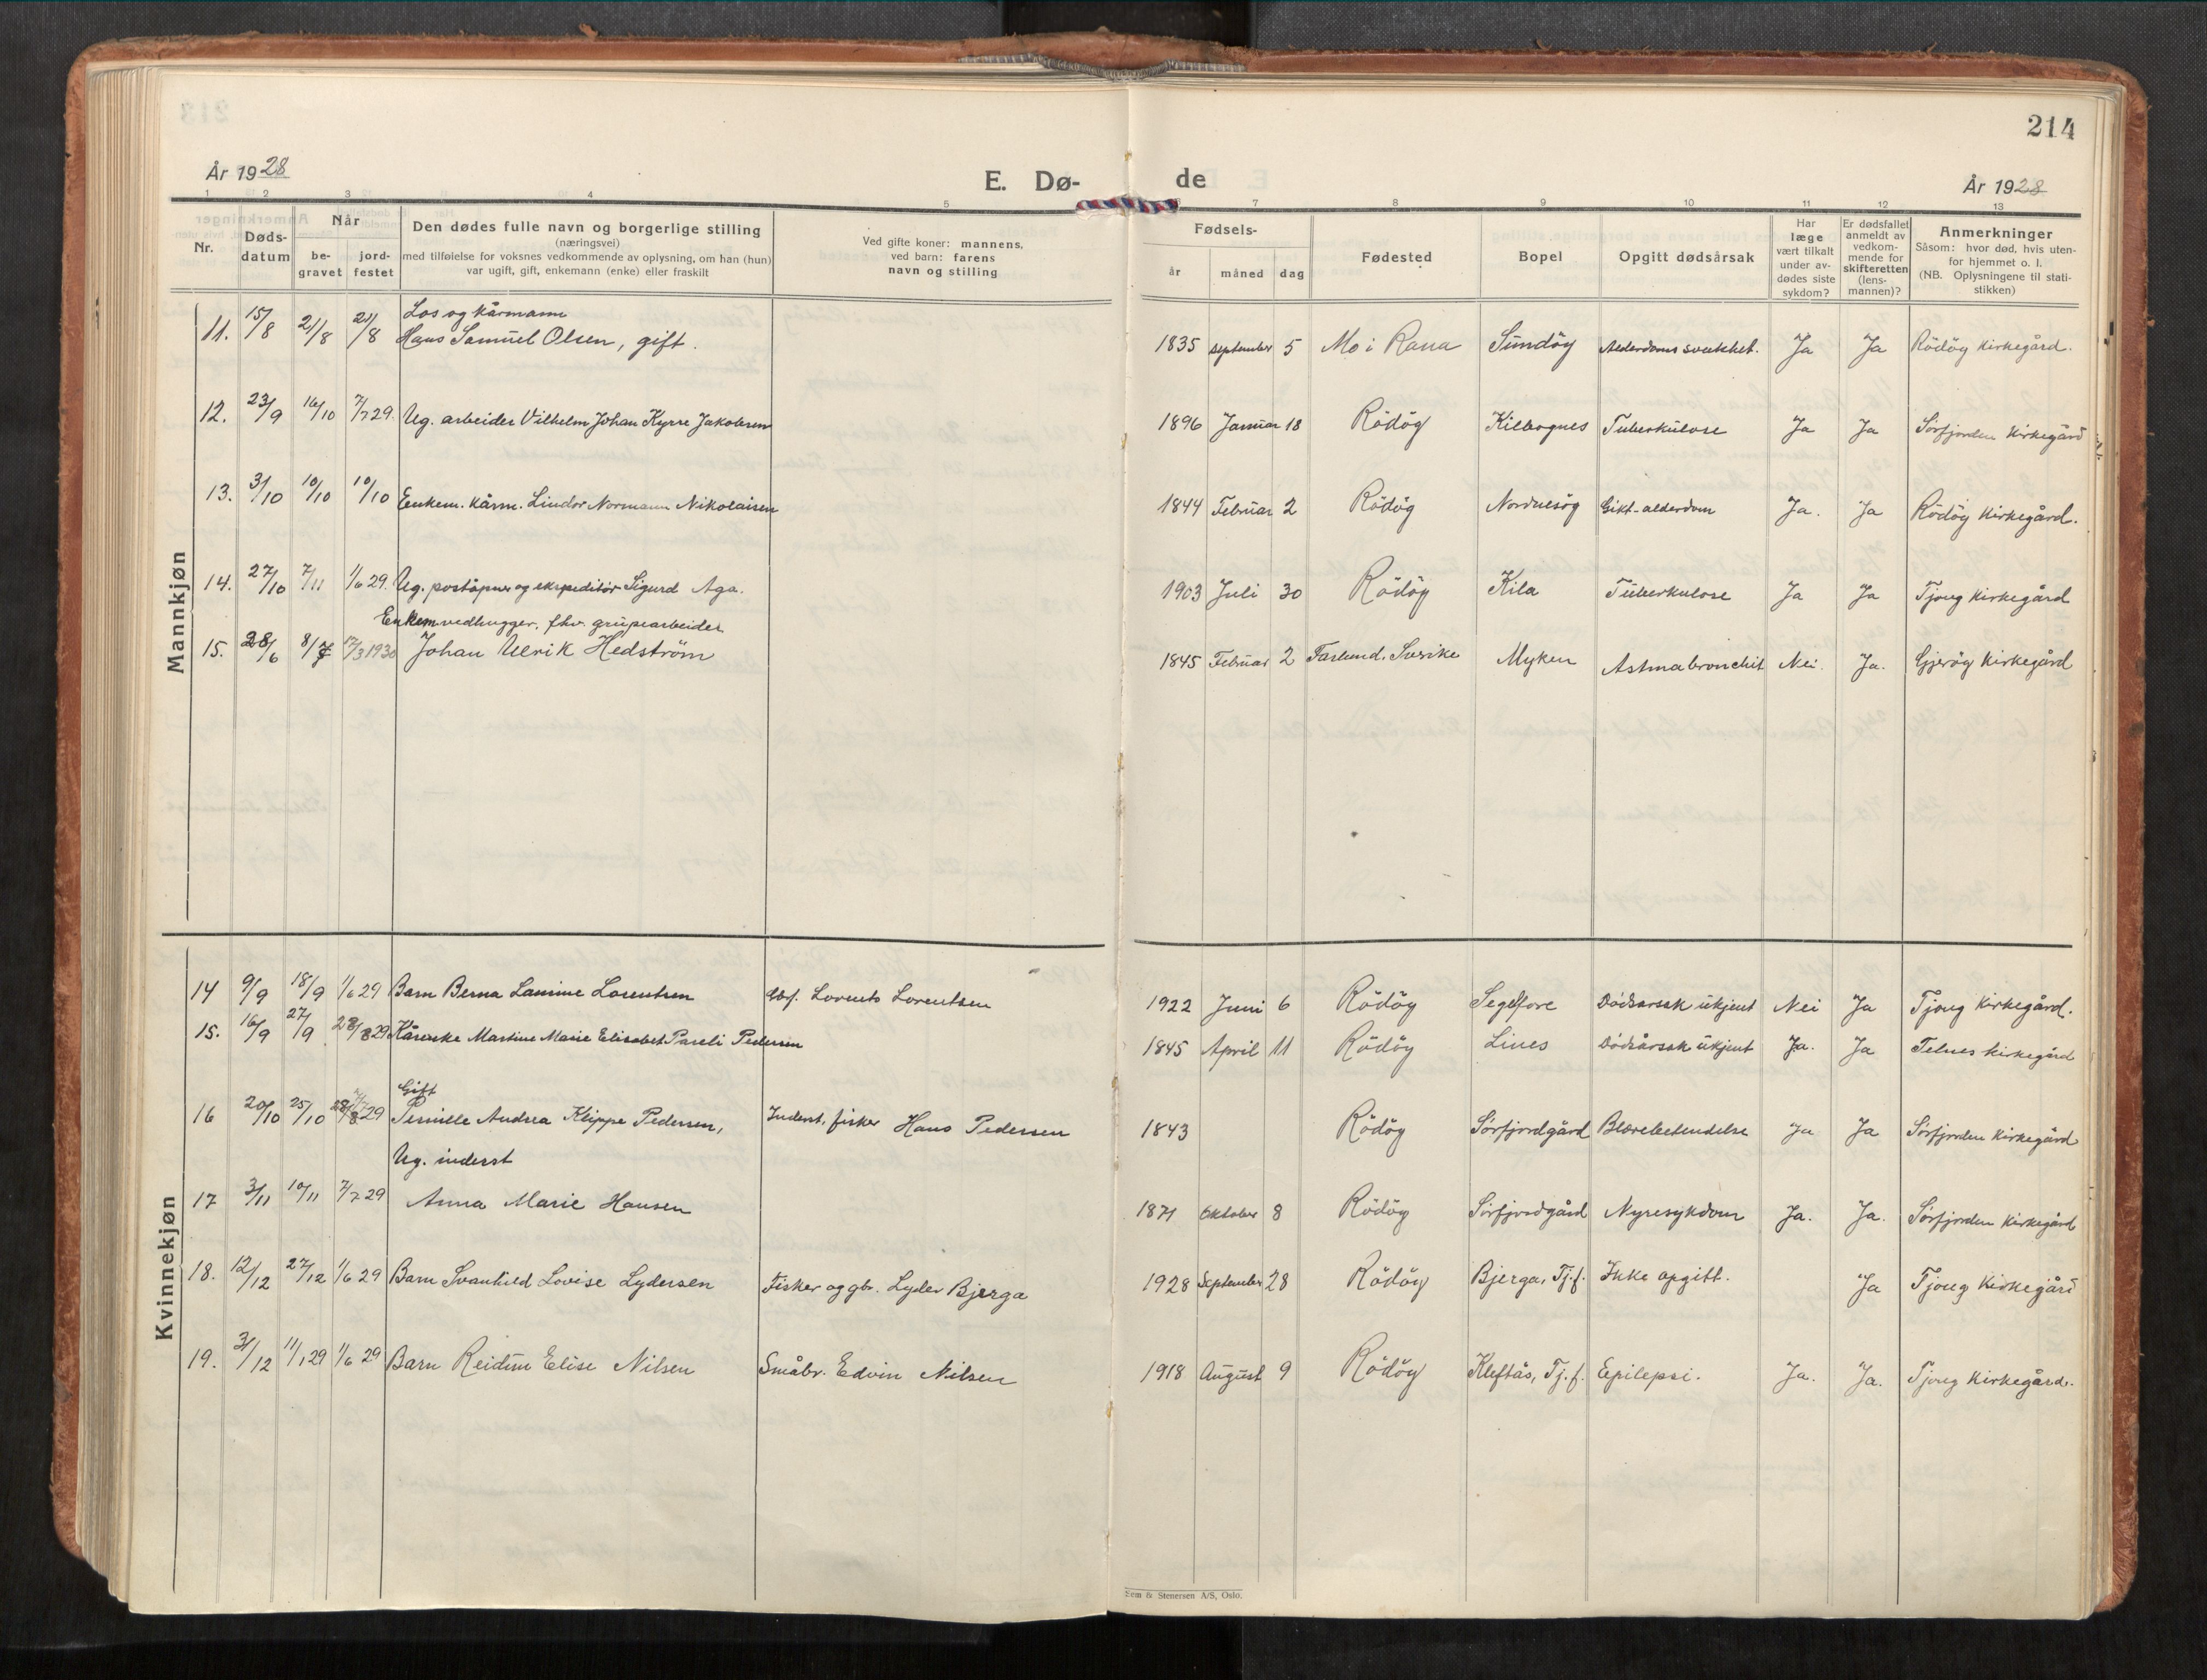 214
År 1928
E. Dø-
de
År 1928
1 2 3 4 5 6 7 8 9 10 11 12 13
Nr.
Døds-
datum
Når
be-
gravet
jord-
festet
Den dødes fulle navn og borgerlige stilling
(næringsvei)
med tilføielse for voksnes vedkommende av oplysning, om han (hun)
var ugift, gift, enkemann (enke) eller fraskilt
Ved gifte koner: mannens,
ved barn: farens
navn og stilling
Fødsels-
år måned dag
Fødested
Bopel
Opgitt dødsårsak
Har
læge
vært tilkalt
under av-
dødes siste
sykdom?
Er dødsfallet
anmeldt av
vedkom-
mende for
skifteretten
(lens-
mannen)?
Anmerkninger
Såsom: hvor død, hvis uten-
for hjemmet o. l.
(NB. Oplysningene til stati-
stikken)
Mannkjøn
Los og kårmann
11. 15/8 21/8 21/8 Hans Samuel Olsen, gift. 1835 september 5 Mo i Rana Sundöy Alderdoms svekket. Ja Ja Rödöy Kirkegård.
12. 23/9 16/10 7/7 29. Ug. arbeider Vilhelm Johan Kyrre Jakobsen 1896 Januar 18 Rödöy Kilbognes Tuberkulose Ja Ja Sörfjorden Kirkegård
13. 3/10 10/10 10/10 Enkem. kårm. Lindor Normann Nikolaisen 1844 Februar 2 Rödöy Nordnesöy Gikt-alderdom Ja. Ja Rödöy Kirkegård.
14. 27/10 7/11 1/6 29. Ug. poståpner og ekspeditör Sigurd Aga. 1903 Juli 30 Rödöy Kila Tuberkulose Ja Ja Tjong Kirkegård
Enkem. vedhugger, fhv. grupearbeider
15. 28/6 8/7 17/3 1930 Johan Ulrik Hedström 1845 Februar 2 Farlund, Sverike Myken Astma bronchit Nei. Ja. Gjeröy Kirkegård
Kvinnekjøn
14 9/9 18/9 1/6 29 Barn Berna Laurine Lorentsen Gbr. Lorents Lorentsen 1922 Juni 6 Rödöy Segelfore Dödsårsak ukjent Nei Ja Tjong Kirkegård.
15. 16/9 27/9 28/8 29 Kårenke Martine Marie Elisabet Pareli Pedersen 1845 April 11 Rödöy Lines Dödsårsak ukjent Ja. Ja Telnes kirkegård
Gift
16 20/10 25/10 28/8 29 Pernille Andrea Klippe Pedersen, Inderst, fisker Hans Pedersen 1843 Rödöy Sörfjordgård Blærebetendelse Ja Ja Sörfjorden Kirkegård
Ug. inderst
17 3/11 10/11 7/7 29 Anna Marie Hansen 1871 Oktober 8 Rödöy Sörfjordgård Nyresykdom Ja. Ja. Sörfjorden Kirkegård
18. 12/12 27/12 1/6 29 Barn Svanhild Lovise Lydersen Fisker og gbr. Lyder Bjerga 1928 September 28 Rödöy Bjerga, Tj.f. Ikke opgitt. Ja Tjong Kirkegård
19. 31/12 11/1 29 1/6 29 Barn Reidun Elise Nilsen Småbr. Edvin Nilsen 1918 August 9 Rödöy Kleftås, Tj.f. Epilepsi. Ja. Ja. Tjong Kirkegård.
Sem & Stenersen A/S, Oslo.